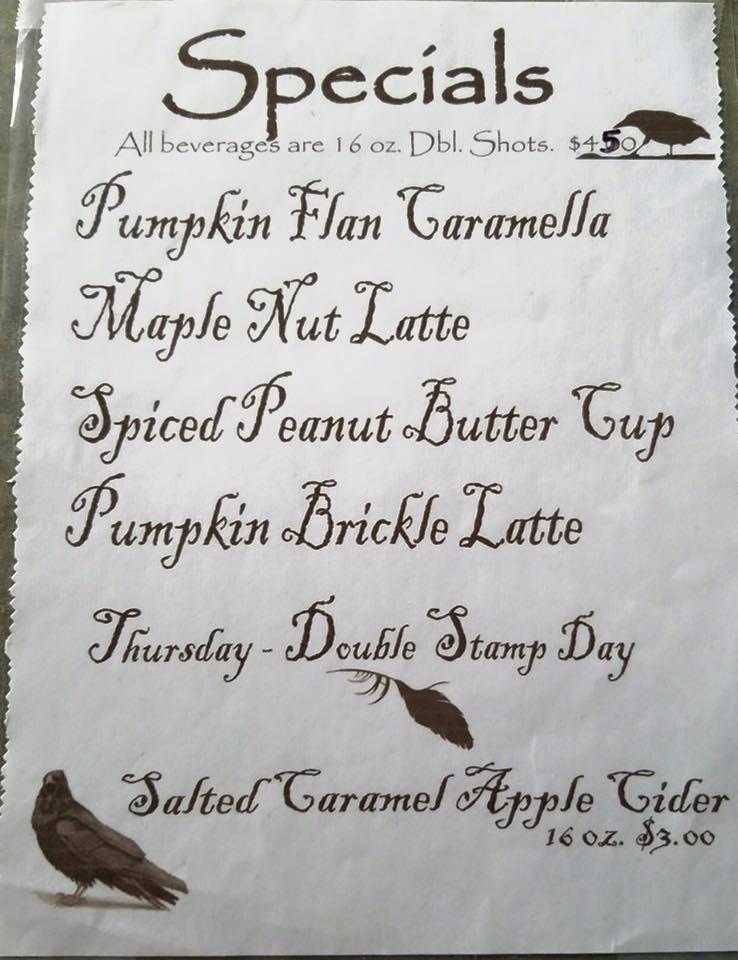 Specials
All beverages are 16 oz. Dbl. Shots. $4.50
Pumpkin Flan Caramella
Maple Nut Latte
Spiced Peanut Butter Cup
Pumpkin Brickle Latte
Thursday - Double Stamp Day
Salted Caramel Apple Cider
16 oz. $3.00